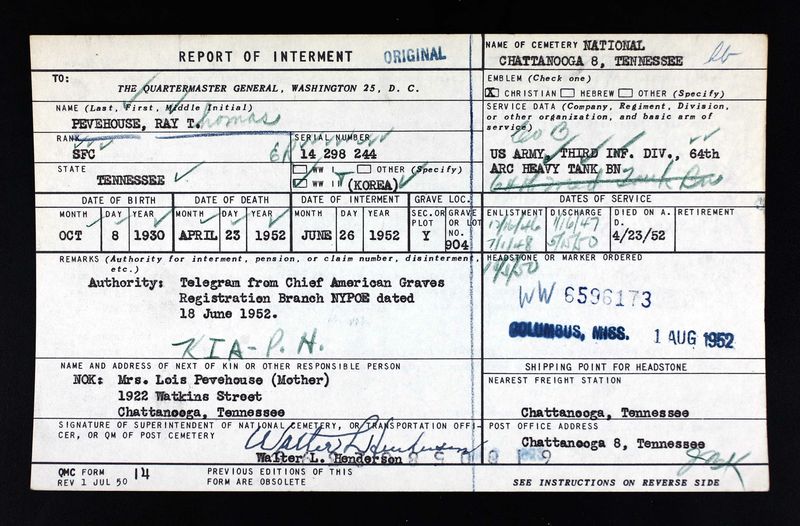 REPORT OF INTERMENT ORIGINAL
TO:
THE QUARTERMASTER GENERAL, WASHINGTON 25, D. C.
NAME (Last, First, Middle Initial)
PEVEHOUSE, RAY T. homas
RANK
SFC
SERIAL NUMBER
14 298 244
STATE
TENNESSEE
WW I OTHER (Specify)
WW II (KOREA)
DATE OF BIRTH DATE OF DEATH DATE OF INTERMENT GRAVE LOC.
MONTH DAY YEAR MONTH DAY YEAR MONTH DAY YEAR SEC. OR PLOT GRAVE OR LOT NO.
OCT 8 1930 APRIL 23 1952 JUNE 26 1952 Y 904
REMARKS (Authority for interment, pension, or claim number, disinterment,
etc.)
Authority: Telegram from Chief American Graves
Registration Branch NYPOE dated
18 June 1952.
KIA - P. H.
NAME AND ADDRESS OF NEXT OF KIN OR OTHER RESPONSIBLE PERSON
NOK: Mrs. Lois Pevehouse (Mother)
1922 Watkins Street
Chattanooga, Tennessee
SIGNATURE OF SUPERINTENDENT OF NATIONAL CEMETERY, OR TRANSPORTATION OFFI-
CER, OR QM OF POST CEMETERY
Walter L. Henderson
Walter L. Henderson
QMC FORM 14
REV 1 JUL 50
PREVIOUS EDITIONS OF THIS
FORM ARE OBSOLETE
NAME OF CEMETERY NATIONAL
CHATTANOOGA 8, TENNESSEE
EMBLEM (Check one)
X CHRISTIAN HEBREW OTHER (Specify)
SERVICE DATA (Company, Regiment, Division,
or other organization, and basic arm of
service)
Co B
US ARMY, THIRD INF. DIV., 64th
ARC HEAVY TANK BN
DATES OF SERVICE
ENLISTMENT DISCHARGE DIED ON A. D. RETIREMENT
7/11/48 5/15/50 4/23/52
HEADSTONE OR MARKER ORDERED
WW 6596173
COLUMBUS, MISS. 1 AUG 1952
SHIPPING POINT FOR HEADSTONE
NEAREST FREIGHT STATION
Chattanooga, Tennessee
POST OFFICE ADDRESS
Chattanooga 8, Tennessee
SEE INSTRUCTIONS ON REVERSE SIDE